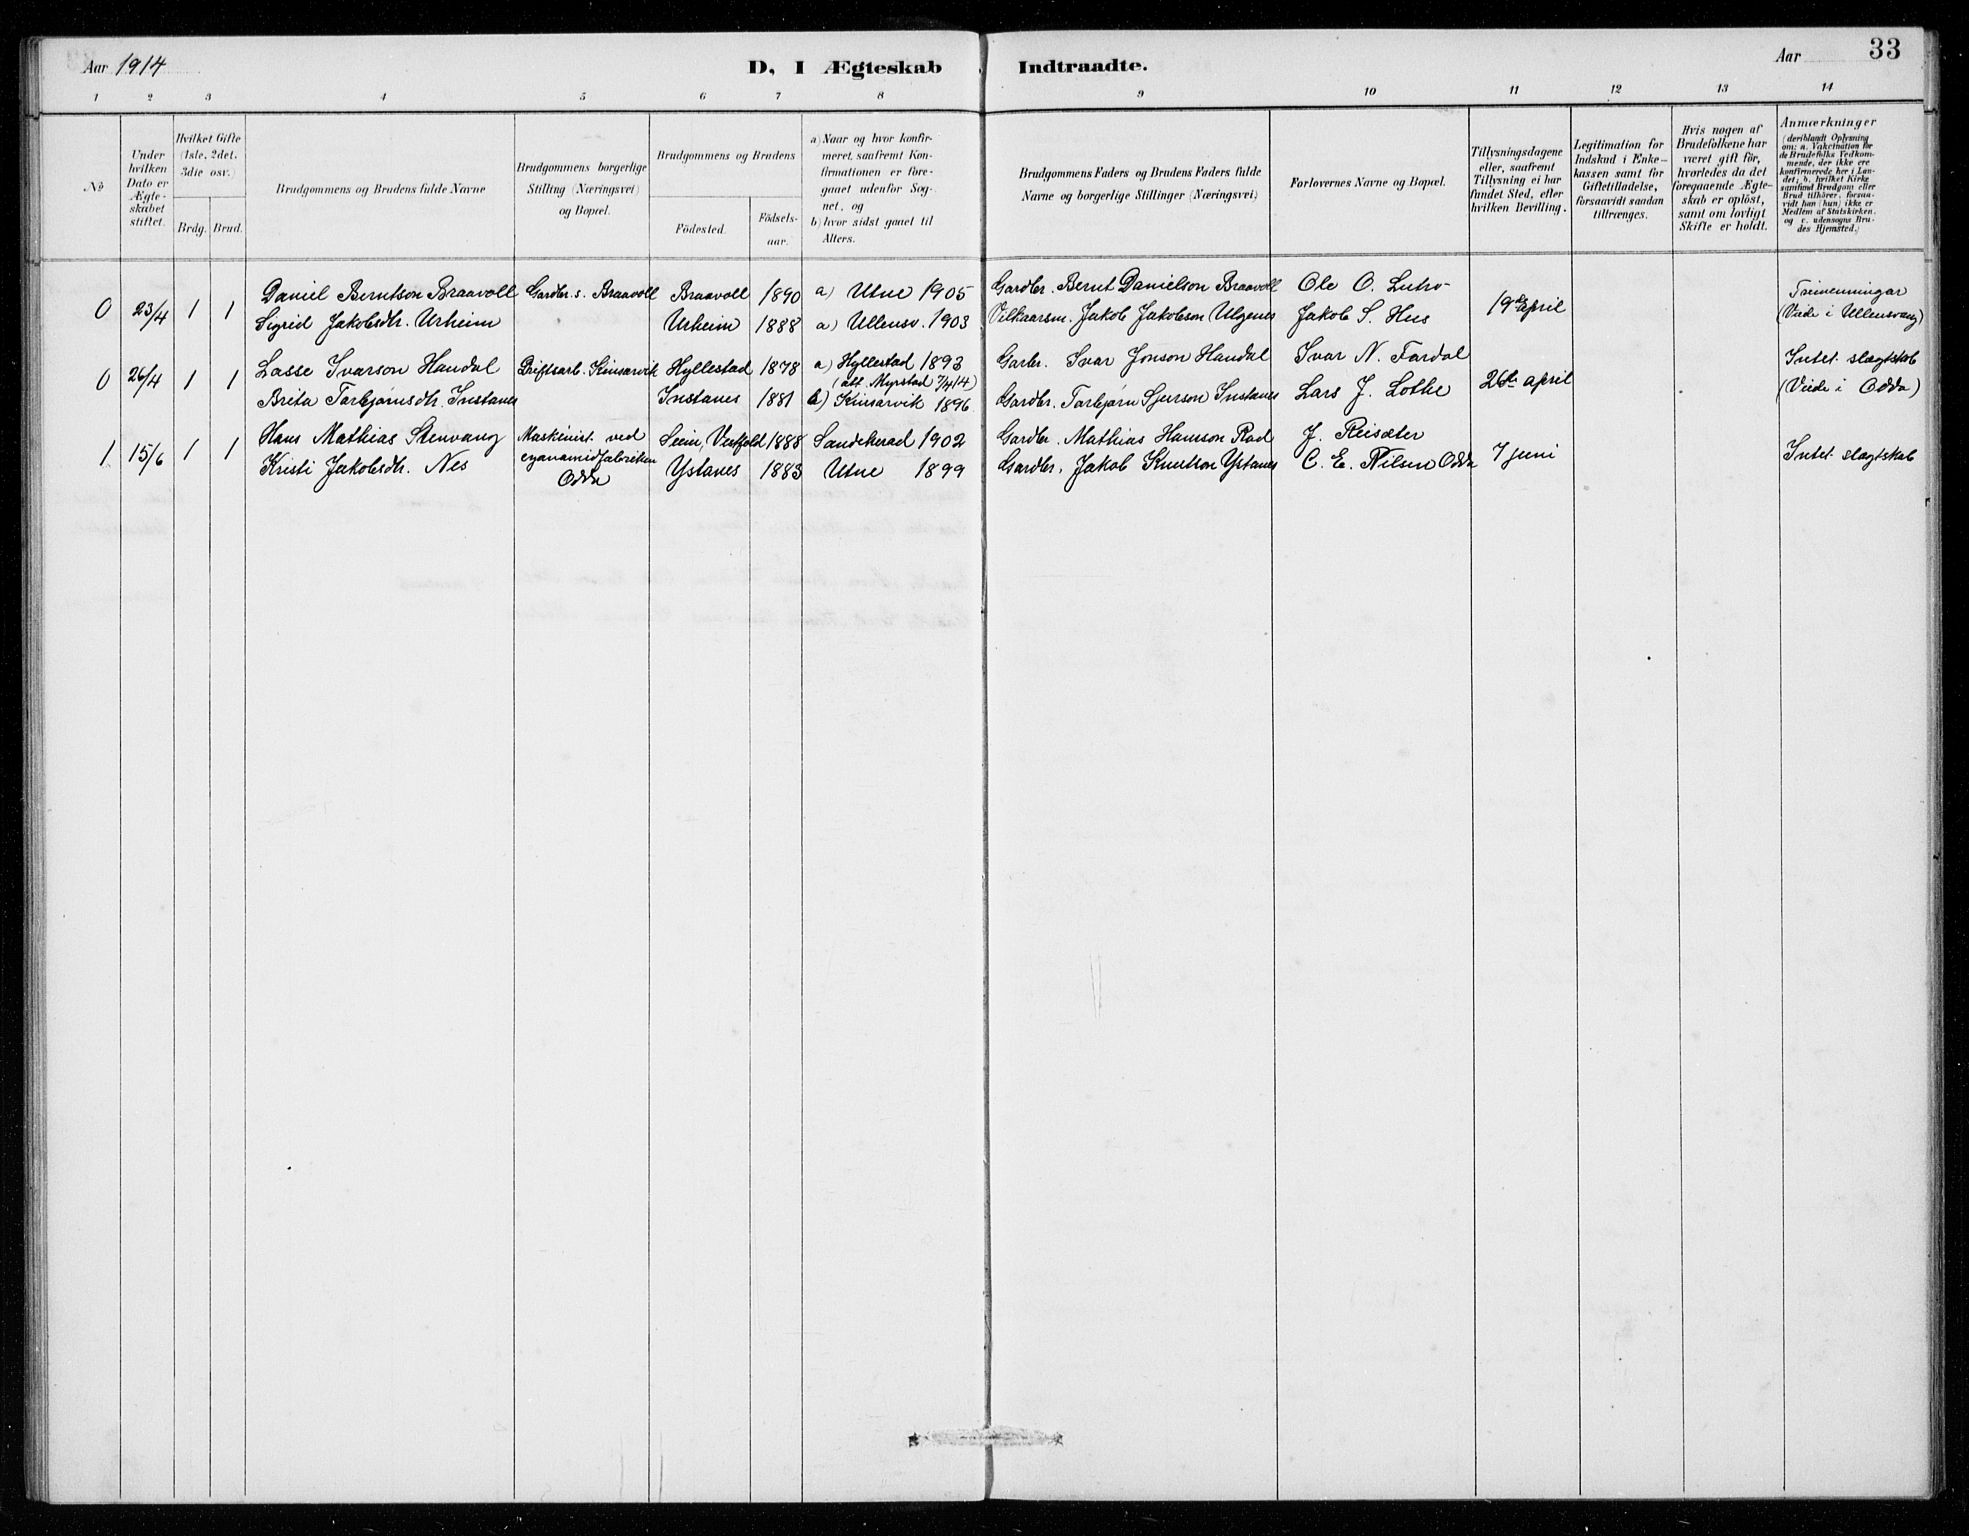 Aar 1914
D, I Ægteskab Indtraadte.
Aar 33
1 2 3 4 5 6 7 8 9 10 11 12 13 14
No
Under hvilken Dato er Ægteskabet stiftet.
Hvilket Gifte (1ste, 2det, 3die osv.)
Brdg. Brud.
Brudgommens og Brudens fulde Navne
Brudgommens borgerlige Stilling (Næringsvei) og Bopæl.
Brudgommens og Brudens
Födested.
Födselsaar.
a) Naar og hvor konfirmeret, saafremt Konfirmationen er foregaaet udenfor Sognet, og
b) hvor sidst gaaet til Alters.
Brudgommens Faders og Brudens Faders fulde Navne og borgerlige Stillinger (Næringsvei)
Forlovernes Navne og Bopæl.
Tillysningsdagene eller, saafremt Tillysning ei har fundet Sted, efter hvilken Bevilling.
Legitimation for Indskud i Enkekassen samt for Giftetilladelse, forsaavidt saadan tiltrænges.
Hvis nogen af Brudefolkene har været gift för, hvorledes da det foregaaende Ægteskab er oplöst, samt om lovligt Skifte er holdt.
Anmærkninger
(deriblandt Oplysning om: a. Vakcination for de Brudefolks Vedkommende, der ikke ere konfirmerede her i Landet; b. hvilket Kirkesamfund Brudgom eller Brud tilhörer, forsaavidt han (hun) ikke er Medlem af Statskirken, og c. udensogns Brudes Hjemsted.)
0 23/4 1 1 Daniel Berntson Braavoll Gardbr.s. Braavoll Braavoll 1890 a) Utne 1905 Gardbr. Bernt Danielson Braavoll Ole O. Lutro 19de april Treimenningar
Sigrid Jakobsdtr. Urheim Urheim 1888 a) Ullensv. 1903 Vilkaarsm. Jakob Jakobson Ulgenes Jakob S. Hus (Viede i Ullensvang)
0 26/4 1 1 Lasse Ivarson Handal Driftsarb. Kinsarvik Hyllestad 1878 a) Hyllestad 1893 Garbr. Ivar Jonson Handal Ivar N. Fardal 26de april Intet slægtskab
(att. Myrstad 7/4 14)
Brita Torbjørnsdtr. Instanes Instanes 1881 b) Kinsarvik 1896 Gardbr. Torbjørn Sjurson Instanes Lars J. Lothe (Viede i Odda)
1 15/6 1 1 Hans Mathias Stenvang Maskinist ved Seim, Vestfold 1888 Sandeherad 1902 Gardbr. Mathias Hansson Rød J. Reisæter 7 juni Intet slægtskab
Kristi Jakobsdtr. Nes cyanamidfabriken Ystanes 1883 Utne 1899 Gardbr. Jakob Knutson Ystanes C. E. Nilsen Odda
Odda